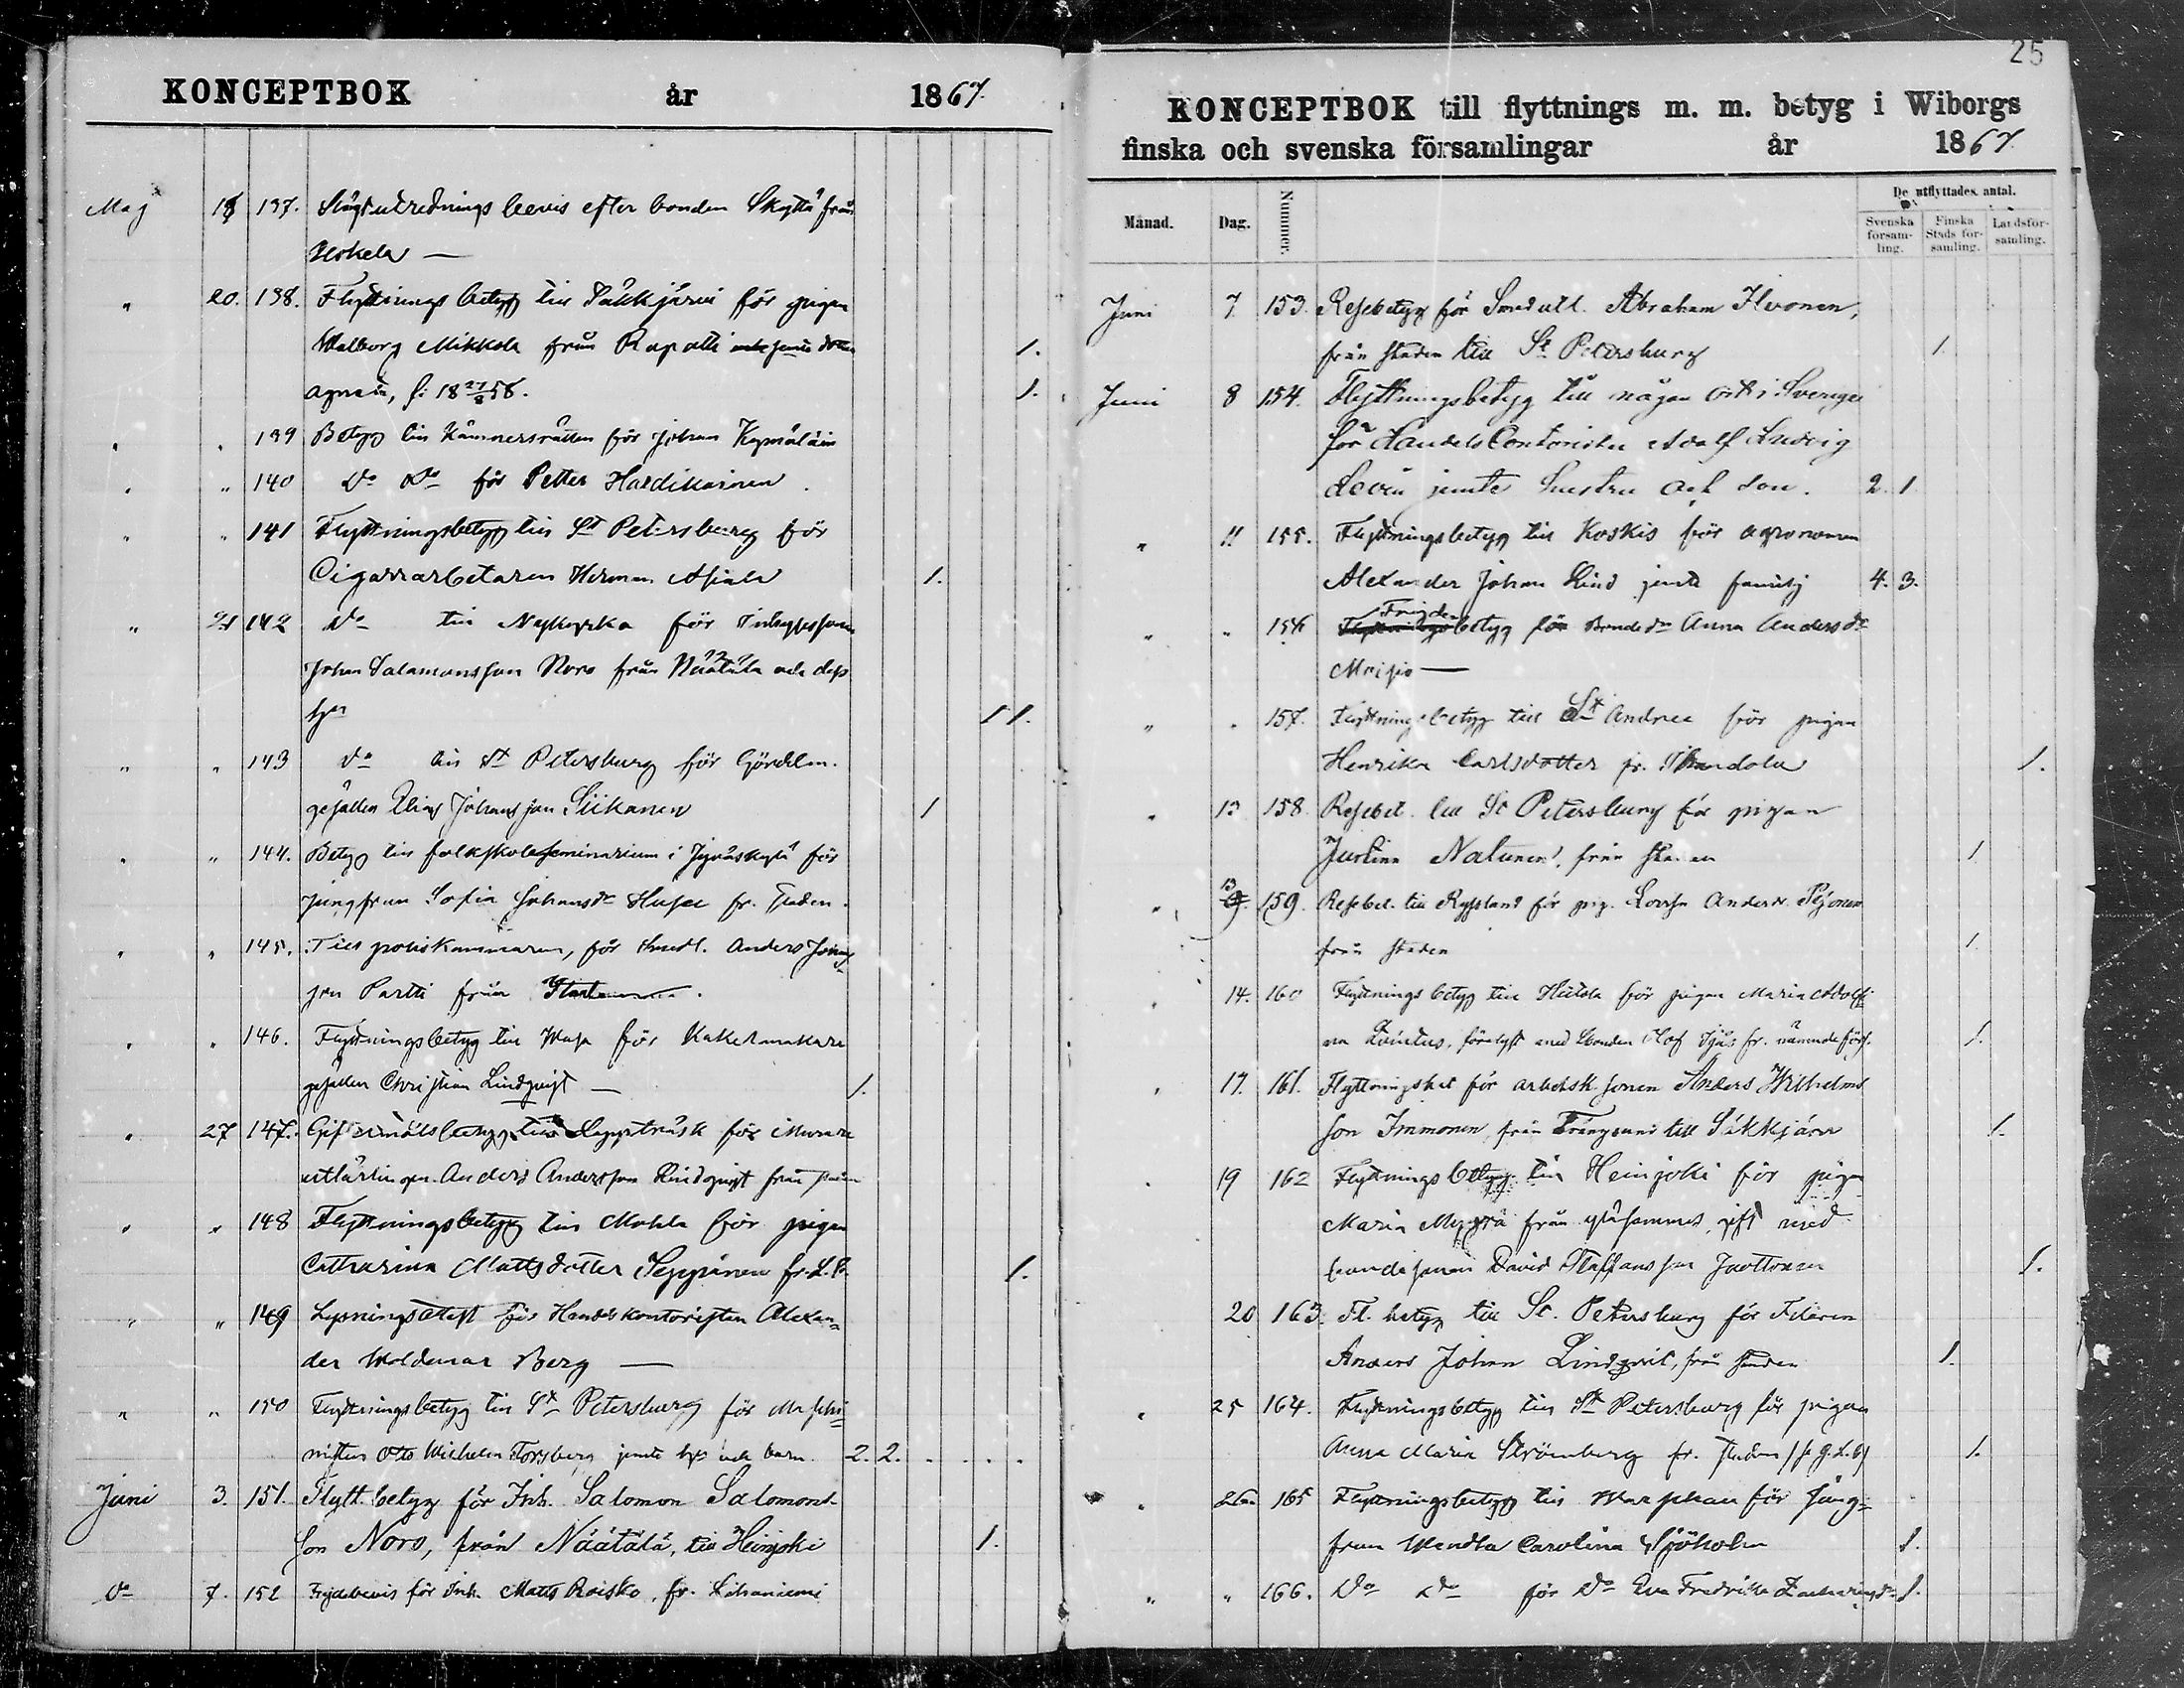 KONCEPTBOK år 1867.
Maj 18 137. Slägtutrednings bevis efter bonden Skyttä från
Herkela —
" 20. 138. Flyttnings betyg till Säkkjärvi för pigan
Walborg Mikkola från Rapatti 1.
Agneta, f: 18 27/8 56. 1.
" " 139 Betyg till Kämnersrätten för Johan Kymäläin
" " 140 Do Do för Petter Hardikainen.
" " 141 Flyttningsbetyg till St Petersburg för
Cigarrarbetaren Herman 1.
" 21 142 Do till Nykyrka för Inhysessonen
Johan Salamonsson Noro från Näätälä och dess
hu 1 1.
" " 143 Do till St Petersburg för Gördelm.
gesällen Elias Johansson Siikanen 1
" " 144. Betyg till folkskoleseminarium i Jyväskylä för
jungfrun Sofia Johansdr fr. staden.
" " 145. Till poliskammaren, för Smedl. Anders Johans
son Partti från
" " 146. Flyttningsbetyg till Wasa för Kakelmakare
gesällen Christian Lindqvist — 1.
" 27 147. Giftermåls betyg till Lappträsk för Murare
utlärlingen Anders Andersson Lindqvist från
" " 148 Flyttningsbetyg till Mohla för pigan
Catharina Mattsdotter Seppänen fr. 1.
" " 149 Lysningsattest för Handelskontoristen Alexan-
der Woldemar Berg —
" " 150 Flyttningsbetyg till St Petersburg för Maschi-
nisten Otto Wilhelm Forsberg jemte hu och barn. 2. 2.
Juni 3. 151. Flytt. betyg för Inh. Salomon Salomons-
son Noro, från Näätälä, till Heinjoki 1.
Do 7. 152 Frejdebevis för Inh. Matts Roisko, fr. Lihaniemi
25
KONCEPTBOK till flyttnings m. m. betyg i Wiborgs
finska och svenska församlingar år 1867.
Månad. Dag. Nummer. De utflyttades antal.
Svenska församling. Finska Stads församling. Landsförsamling.
Juni 7 153. Resebetyg för Smedutl. Abraham Ihvonen,
från staden till St Petersburg 1.
Juni 8 154. Flyttningsbetyg till någon ort i Sverige
för Handels Contoristen Adolf Ludvig
Lovén jemte hustru och son. 2. 1
" 11 155. Flyttningsbetyg till Koskis för agronomen
Alexander Johan Lind jemte familj 4. 3.
" " 156 Frejdebetyg för Bondedr Anna Andersdr
—
" " 157. Flyttningsbetyg till St Andree för pigan
Henrika Carlsdotter fr. 1.
" 13 158. Resebet. till St Petersburg för pigan
Justina Natunen, från staden 1.
" 13 159. Resebet. till Ryssland för pig. Lovisa Andersdr
från staden 1.
" 14. 160 Flyttnings betyg till Hiitola för pigan Maria Adolfi
na, förelyst med Bonden Olof fr. nämnde förs. 1.
" 17. 161. Flyttningsbet för arbetsk. sonen Anders Wilhelms
son Immonen, från Trångsund till Säkkjärvi 1.
" 19 162 Flyttnings betyg till Heinjoki för pigan
Maria Mäyrä från, gift med
bondesonen David Staffansson 1.
20 163. Fl. betyg till St. Petersburg för Filaren
Anders Johan Lindqvist, från staden 1.
" 25 164. Flyttningsbetyg till St Petersburg för pigan
Anna Maria Strömberg fr. staden 1.
" 26. 165 Flyttningsbetyg till för jung-
frun Wendla Carolina Sjöholm 1.
" " 166. Do Do för Do Eva Fredrika Zachariasdr 1.